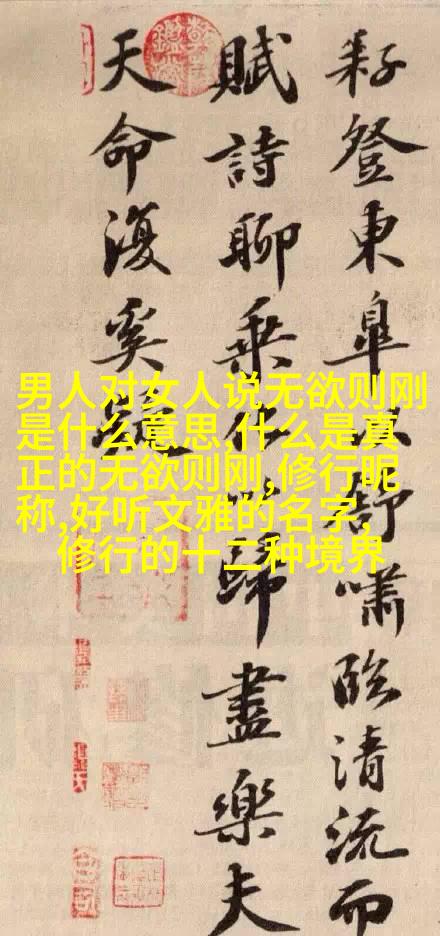 耔登東皋以舒嘯臨清流而
賦詩聊乘化以歸盡樂夫
天命復奚疑
男人对女人说无欲则刚
是什么意思,什么是真
正的无欲则刚,修行昵
称,好听文雅的名字,
修行的十二种境界